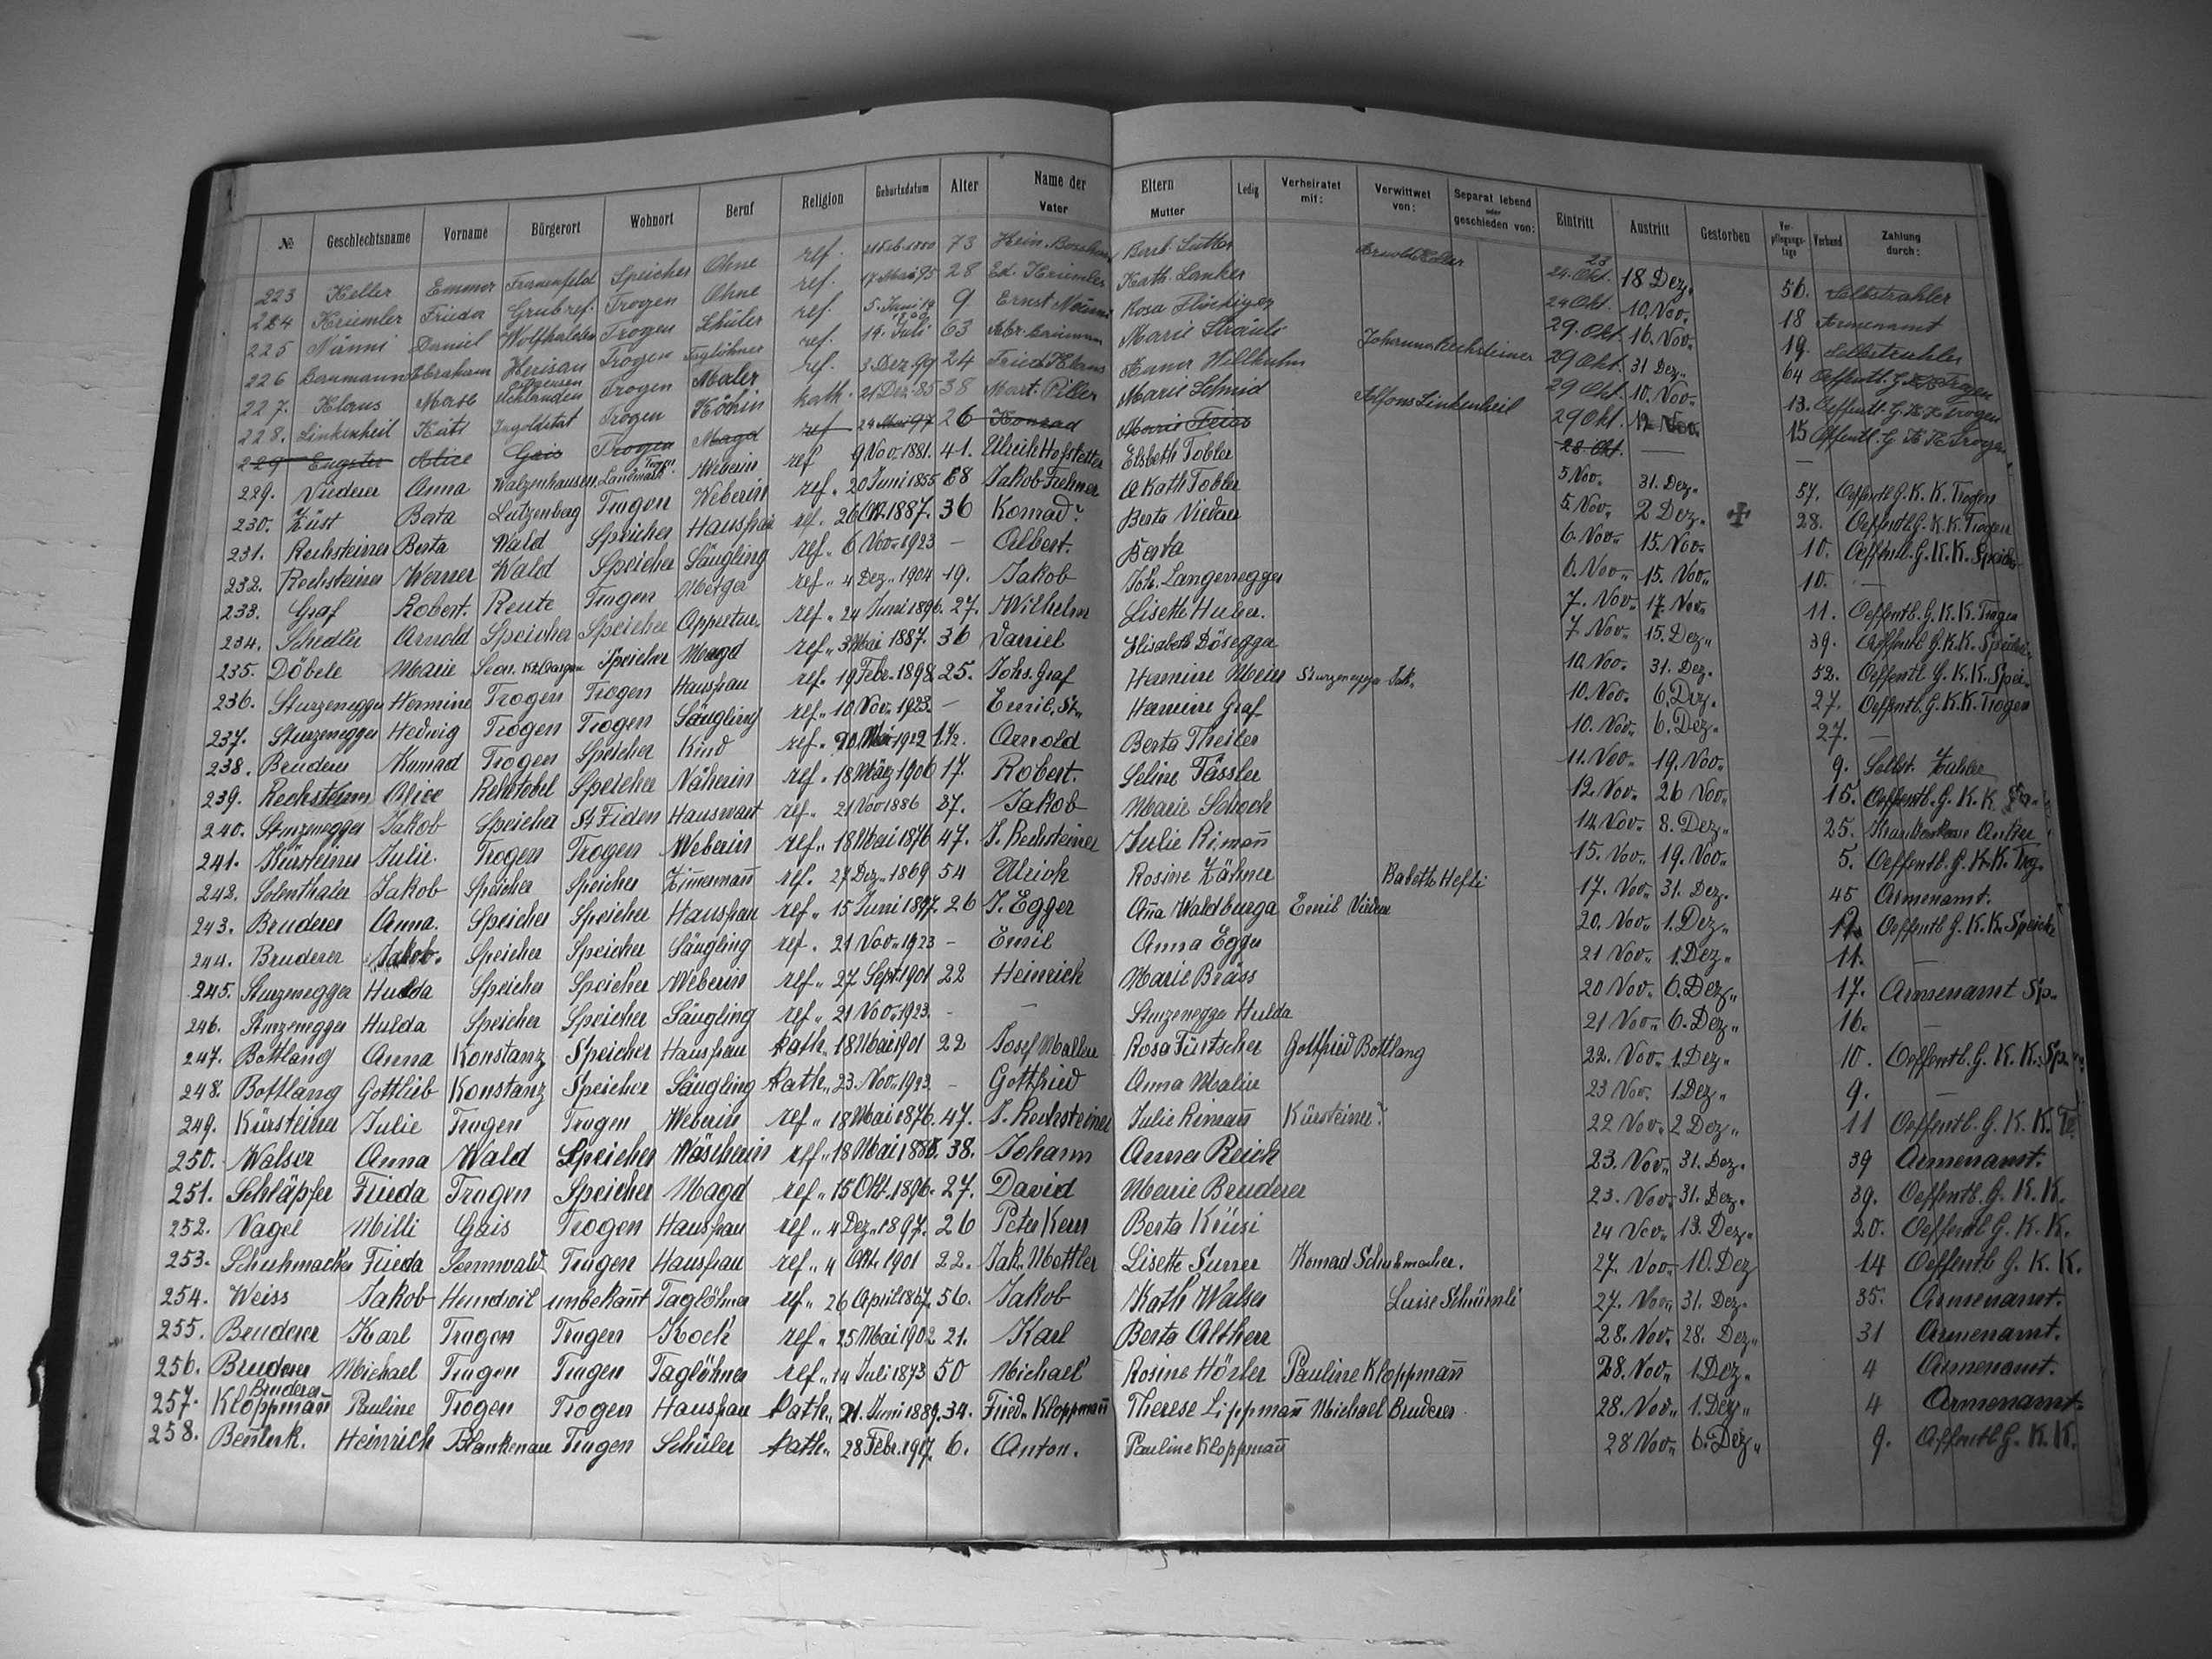 № Geschlechtsname Vorname Bürgerort Wohnort Beruf Religion Geburtsdatum Alter Name der Vater Eltern Mutter Ledig Verheiratet mit: Verwittwet von: Separat lebend oder geschieden von: Eintritt Austritt Gestorben Verpflegungstage Verband Zahlung durch:
223 Keller Emma Frauenfeld Speicher Ohne ref. 73 Barb. Sutter Arnold Keller 23 24. Okt. 18 Dez. 56. Selbstzahler
224 Kriemler Frieda Grub ref. Trogen Ohne ref. 28 Ed. Kriemler Kath. Lanker 24 Okt. 10. Nov. 18 Armenamt
225 Nänni Daniel Wolfhalden Trogen Schüler ref. 9 Ernst Nänni Rosa Flückiger 29. Okt. 16. Nov. 19. Selbstzahler
226 Abraham Herisau Trogen Taglöhner ref. 14. Juli 63 Marie Sträuli Johanna Rechsteiner 29 Okt. 31 Dez. 64 Oeffentl. G. K. K. Trogen
227. Klaus Trogen Maler ref. 3. Dez. 99 24 Fried. Klaus Anna Willhelm 29 Okt. 10. Nov. 13. Oeffentl. G. K. K. Trogen
228. Linkenheil Käti Ingolstat Trogen Köchin kath. 21 Dez. 85 38 Mart. Piller Marie Schmid Alfons Linkenheil 29 Okt. 12 Nov. 15 Oeffentl. G. K. K. Trogen
229 Engster Alice Gais Trogen Magd ref 24 Mai 97 26 Konrad 28. Okt. —
229. Niederer Anna Walzenhausen Landmark Trogen Weberin ref 9 Nov. 1881. 41. Ulrich Hofstetter Elsbeth Tobler 5 Nov. 31. Dez. 57. Oeffentl. G. K. K. Trogen
230. Züst Berta Lutzenberg Trogen Weberin ref. 20 Juni 1855 68 Jakob Frehner A Kath Tobler 5. Nov. 2 Dez. ✠ 28. Oeffentl. G. K. K. Trogen
231. Rechsteiner Berta Wald Speicher Hausfrau ref. 26 Okt. 1887. 36 Konrad? Berta Niederer 6. Nov. 15. Nov. 10. Oeffentl. G. K. K. Speicher
232. Rechsteiner Werner Wald Speicher Säugling ref. 6 Nov. 1923 – Albert. Berta 6. Nov. 15. Nov. 10. —
233. Graf Robert. Reute Trogen Metzger ref. 4 Dez. 1904 19. Jakob Joh. Langenegger 7. Nov. 17. Nov. 11. Oeffentl. G. K. K. Trogen
234. Schedler Arnold Speicher Speicher ref. 24 Juni 1896. 27. Wilhelm Lisette Huber. 7. Nov. 15. Dez. 39. Oeffentl. G. K. K. Speicher
235. Döbele Marie Speicher Magd ref. 3 Mai 1887. 36 Daniel Elisabeth Dösegger 10. Nov. 31. Dez. 52. Oeffentl. G. K. K. Spei.
236. Sturzenegger Hermine Trogen Trogen Hausfrau ref. 19 Febr. 1898. 25. Johs. Graf Hermine Meier Sturzenegger Jak. 10. Nov. 6. Dez. 27. Oeffentl. G. K. K. Trogen
237. Sturzenegger Hedwig Trogen Trogen Säugling ref. 10 Nov. 1923. – Emil. St. Hermine Graf 10. Nov. 6. Dez. 27. —
238. Bruderer Konrad Trogen Speicher Kind ref. 20. Mai 1922 1½. Arnold Berta Theiler 11. Nov. 19. Nov. 9. Selbst. Zahler
239. Rechsteiner Alice Rehetobel Speicher Näherin ref. 18 März 1906 17. Robert. Seline Fässler 12. Nov. 26 Nov. 15. Oeffentl. G. K. K.
240. Sturzenegger Jakob Speicher St Fiden Hauswart ref. 21 Nov 1886 37. Jakob Marie Schoch 14. Nov. 8. Dez. 25. Krankenkasse Anker
241. Kürsteiner Julie. Trogen Trogen Weberin ref. 18 Mai 1876 47. J. Rechsteiner Julie Rimañ 15. Nov. 19. Nov. 5. Oeffentl. G. K. K. Trog.
242. Solenthaler Jakob Speicher Speicher Zimmermañ ref. 27 Dez. 1869 54 Ulrich Rosine Zähner Babeth Hefti 17. Nov. 31. Dez. 45 Armenamt.
243. Bruderer Anna. Speicher Speicher Hausfrau ref. 15 Juni 1897. 26 J. Egger Aña Waldburga Emil Niederer 20. Nov. 1. Dez. 12. Oeffentl. G. K. K. Speicher
244. Bruderer Jakob. Speicher Speicher Säugling ref. 21 Nov. 1923 – Emil Anna Egger 21 Nov. 1. Dez. 11. —
245. Sturzenegger Hulda Speicher Speicher Weberin ref. 27 Sept. 1901 22 Heinrich Marie Bräss 20 Nov. 6. Dez. 17. Armenamt Sp.
246. Sturzenegger Hulda Speicher Speicher Säugling ref. 21 Nov. 1923. – – Sturzenegger Hulda 21 Nov. 6. Dez. 16. —
247. Bottlang Anna Konstanz Speicher Hausfrau kath. 18 Mai 1901 22 Josef Rosa Fürtscher Gottfried Bottlang 22. Nov. 1. Dez. 10. Oeffentl. G. K. K. Sp.
248. Bottlang Gottlieb Konstanz Speicher Säugling kath. 23. Nov. 1923. – Gottfried Anna 23 Nov. 1. Dez. 9. —
249. Kürsteiner Julie Trogen Trogen Weberin ref. 18 Mai 1876. 47. J. Rechsteiner Julie Rimañ Kürsteiner? 22 Nov. 2 Dez. 11 Oeffentl. G. K. K.
250. Walser Anna Wald Speicher Wäscherin ref. 18 Mai 1885. 38. Johann Anna Reich 23. Nov. 31. Dez. 39 Armenamt.
251. Schläpfer Frieda Trogen Speicher Magd ref. 15 Okt. 1896. 27. David Marie Bruderer 23. Nov. 31. Dez. 39. Oeffentl. G. K. K.
252. Nagel Milli Gais Trogen Hausfrau ref. 4 Dez. 1897. 26 Peter Kern Berta Krüsi 24 Nov. 13. Dez. 20. Oeffentl G. K. K.
253. Schuhmacher Frieda Trogen Hausfrau ref. 4 Okt. 1901 22. Jak. Mottler Lisette Konrad Schuhmacher. 27. Nov. 10. Dez 14 Oeffentl G. K. K.
254. Weiss Jakob Hundwil unbekañt Taglöhner ref. 26 April 1867. 56. Jakob Kath Walser Luise Schürmli 27. Nov. 31. Dez. 35. Armenamt.
255. Bruderer Karl Trogen Trogen Koch ref. 25 Mai 1902 21. Karl Berta Altherr 28. Nov. 28. Dez. 31 Armenamt.
256. Bruderer Michael Trogen Trogen Taglöhner ref. 14 Juli 1873 50 Michael Rosine Hörler Pauline Kloppmañ 28. Nov. 1. Dez. 4 Armenamt.
257. Bruderer Kloppmañ Pauline Trogen Trogen Hausfrau kath. 21. Juni 1889. 34. Fried. Kloppmañ Therese Lippmañ Michael Bruderer 28. Nov. 1. Dez. 4 Armenamt.
258. Heinrich Blankenau Trogen Schüler kath. 28 Febr. 1917. 6. Anton. Pauline Kloppmañ 28 Nov. 6. Dez. 9. Oeffentl G. K. K.